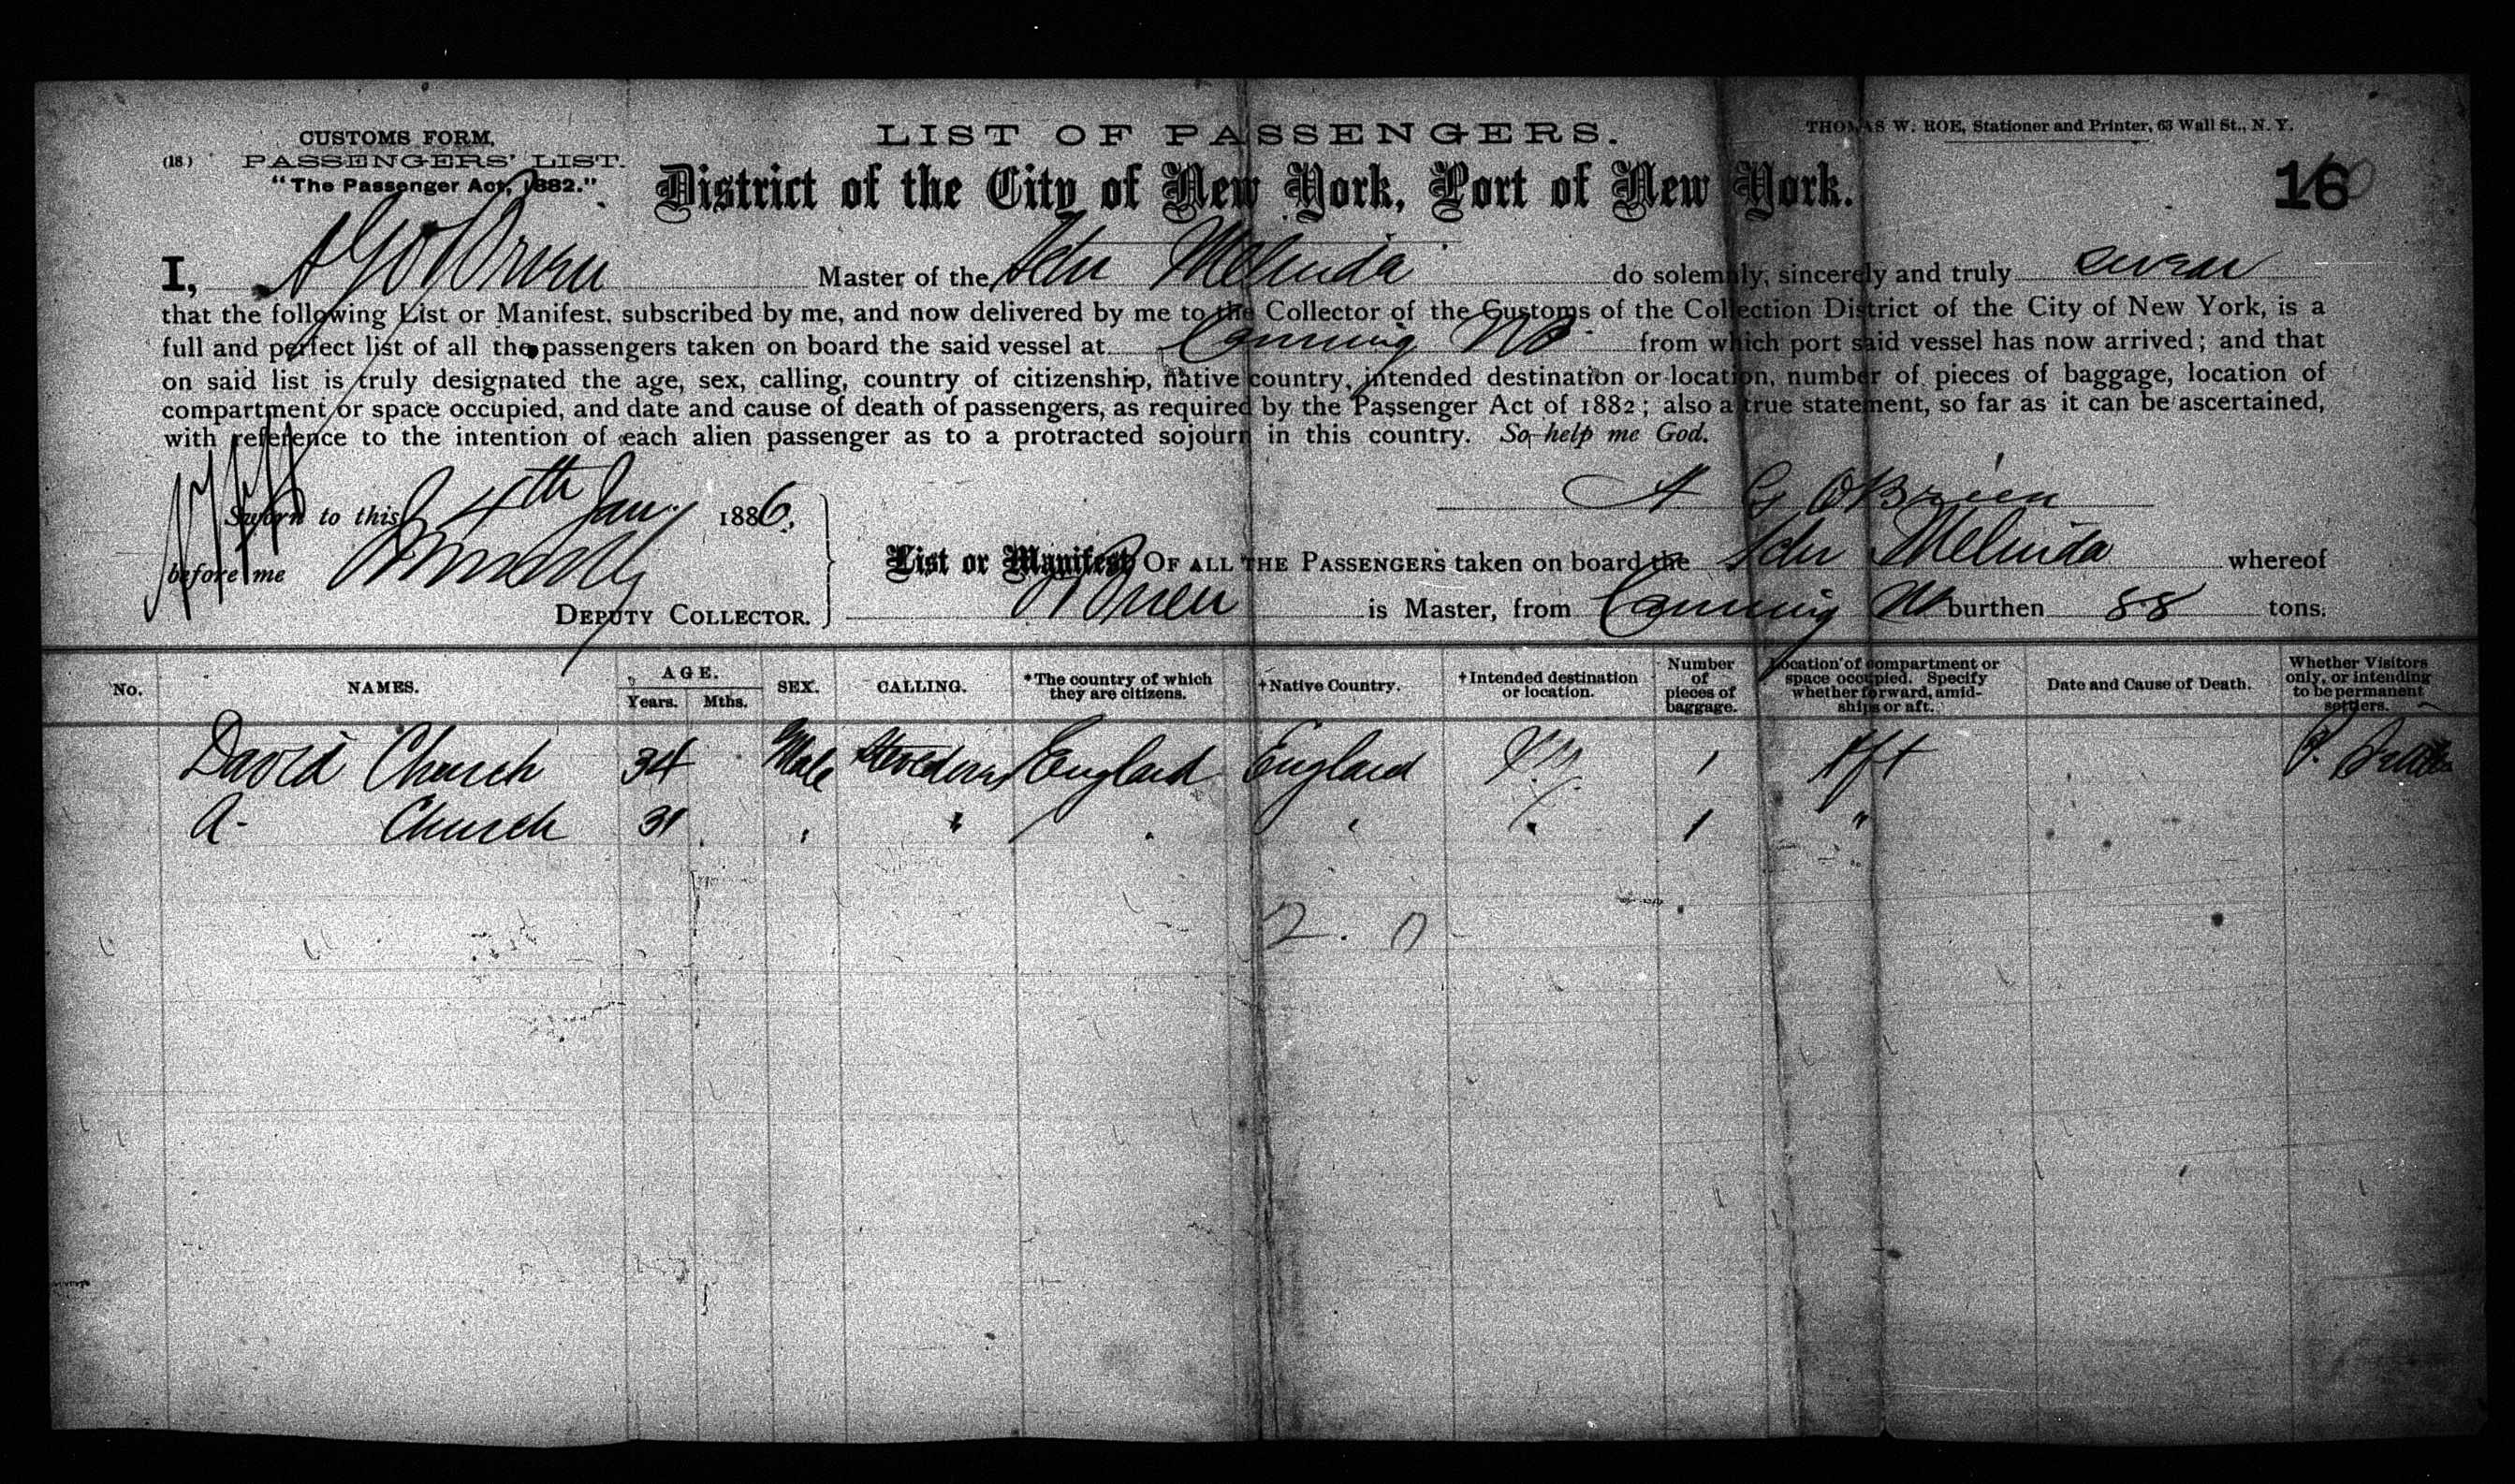 CUSTOMS FORM,
(18) PASSENGERS' LIST.
"The Passenger Act, 1882."
LIST OF PASSENGERS.
THOMAS W. ROE, Stationer and Printer, 63 Wall St., N. Y.
District of the City of New York, Port of New York.
16
I, A G O'Brien Master of the Schr Melinda do solemnly, sincerely and truly swear
that the following List or Manifest, subscribed by me, and now delivered by me to the Collector of the Customs of the Collection District of the City of New York, is a
full and perfect list of all the passengers taken on board the said vessel at Canning NS from which port said vessel has now arrived; and that
on said list is truly designated the age, sex, calling, country of citizenship, native country, intended destination or location, number of pieces of baggage, location of
compartment or space occupied, and date and cause of death of passengers, as required by the Passenger Act of 1882; also a true statement, so far as it can be ascertained,
with reference to the intention of each alien passenger as to a protracted sojourn in this country. So help me God.
A G OBrien
Sworn to this 4th Jan. 1886.
before me
DEPUTY COLLECTOR.
List or Manifest OF ALL THE PASSENGERS taken on board the Schr Melinda whereof
OBrien is Master, from Canning NS burthen 88 tons.
No. NAMES. AGE. Years. Mths. SEX. CALLING. *The country of which they are citizens. †Native Country. †Intended destination or location. Number of pieces of baggage. Location of compartment or space occupied. Specify whether forward, amidships or aft. Date and Cause of Death. Whether Visitors only, or intending to be permanent settlers.
David Church 34 Male Stevedores England England N.Y. 1 Aft
A. Church 31 " " " " " 1 "
2. 0